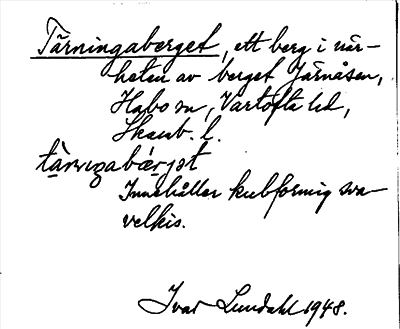 Tärningaberget, ett berg i när-
heten av berget Järnåsen,
Habo sn, Vartofta hd,
Skarab. l.
tärningabærjət
Innehåller kubformig sva-
velkis.
Ivar Lundahl 1948.